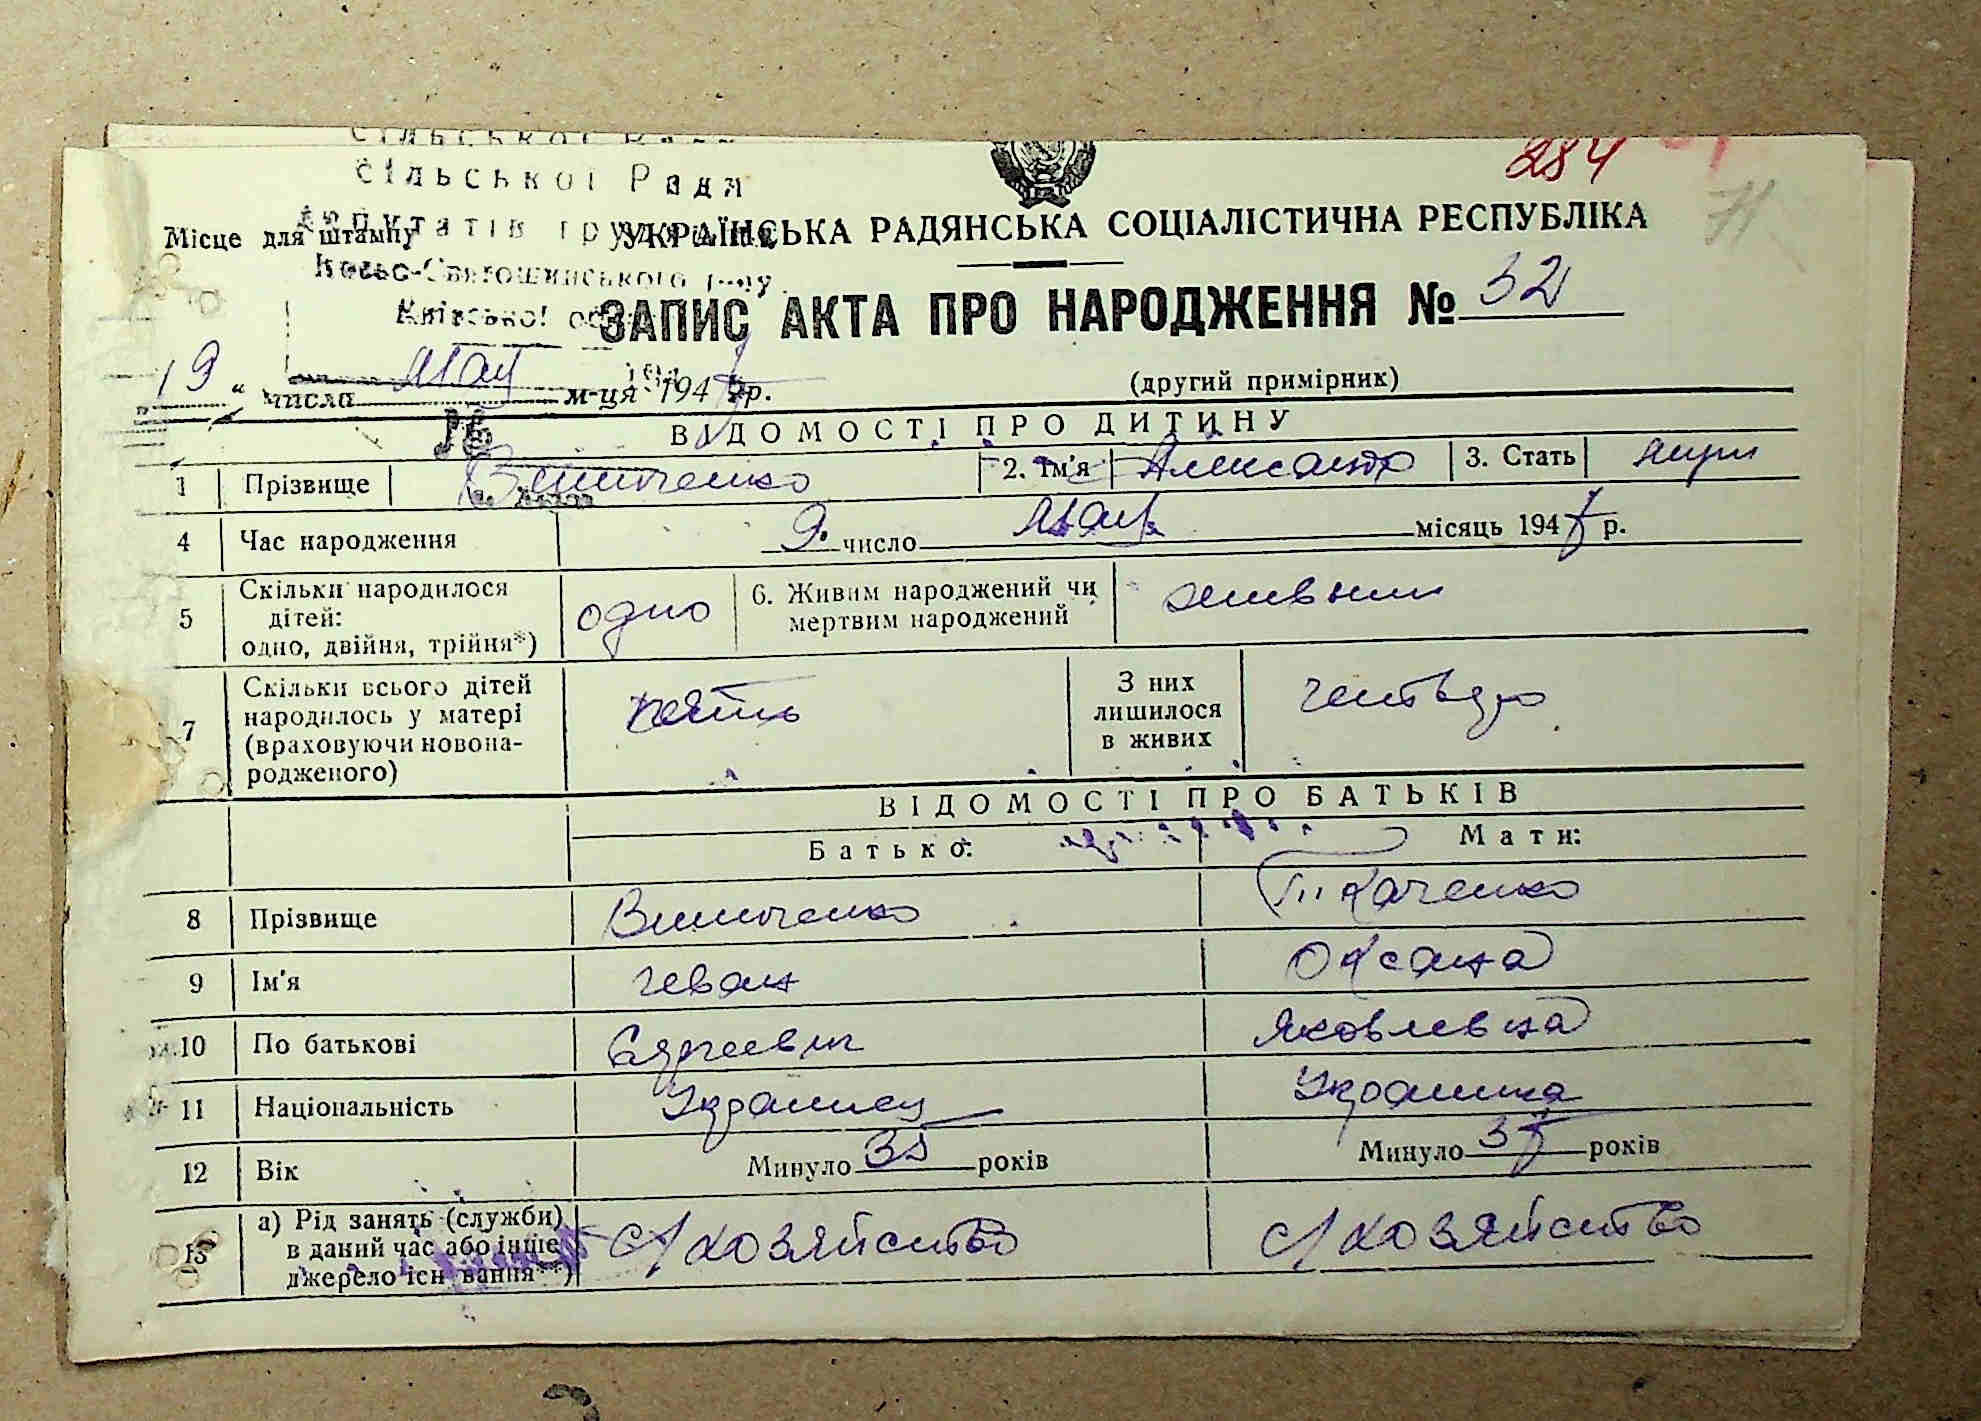 сільської Ради
284
сільської Ради
71
Місце для штампу
депутатів трудящих
УКРАЇНСЬКА РАДЯНСЬКА СОЦІАЛІСТИЧНА РЕСПУБЛІКА
Києво-Святошинського р-ну
Київської обл.
ЗАПИС АКТА ПРО НАРОДЖЕННЯ № 32
19 " числа мая м-ця 1947 р.
(другий примірник)
№
ВІДОМОСТІ ПРО ДИТИНУ
1 Прізвище Винниченко 2. Ім'я Александр 3. Стать
4 Час народження 9. число мая місяць 1947 р.
5 Скільки народилося дітей: одно, двійня, трійня*) одно 6. Живим народжений чи мертвим народжений живым
7 Скільки всього дітей народилось у матері (враховуючи новонародженого) пять З них лишилося в живих четверо
ВІДОМОСТІ ПРО БАТЬКІВ
Батько: Мати:
8 Прізвище Винниченко Ткаченко
9 Ім'я Иван Оксана
10 По батькові Сергеевич Яковлевна
11 Національність Украинец Украинка
12 Вік Минуло 35 років Минуло 37 років
13 а) Рід занять (служби) в даний час або інше джерело існування**) с/хозяйство с/хозяйство